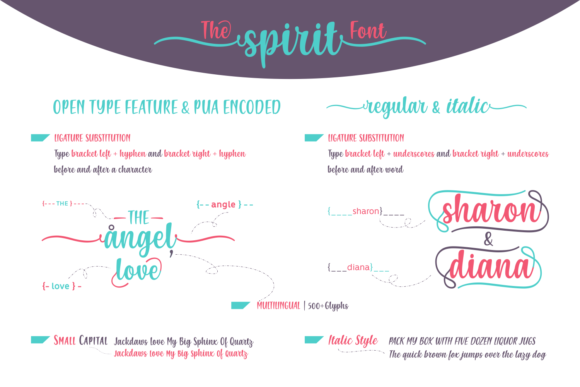 The spirit Font
OPEN TYPE FEATURE & PUA ENCODED
LIGATURE SUBSTITUTION
Type bracket left + hyphen and bracket right + hyphen
before and after a character
{--- THE }---
{-- angle }--
THE
angel,
love
{- love }-
regular & italic
LIGATURE SUBSTITUTION
Type bracket left + underscores and bracket right + underscores
before and after word
{____sharon}____
sharon
&
diana
{___diana}___
MULTILINGUAL | 500+Glyphs
SMALL CAPITAL Jackdaws Love My Big Sphinx Of Quartz
Jackdaws Love My Big Sphinx Of Quartz
Italic Style PACK MY BOX WITH FIVE DOZEN LIQUOR JUGS
The quick brown fox jumps over the lazy dog